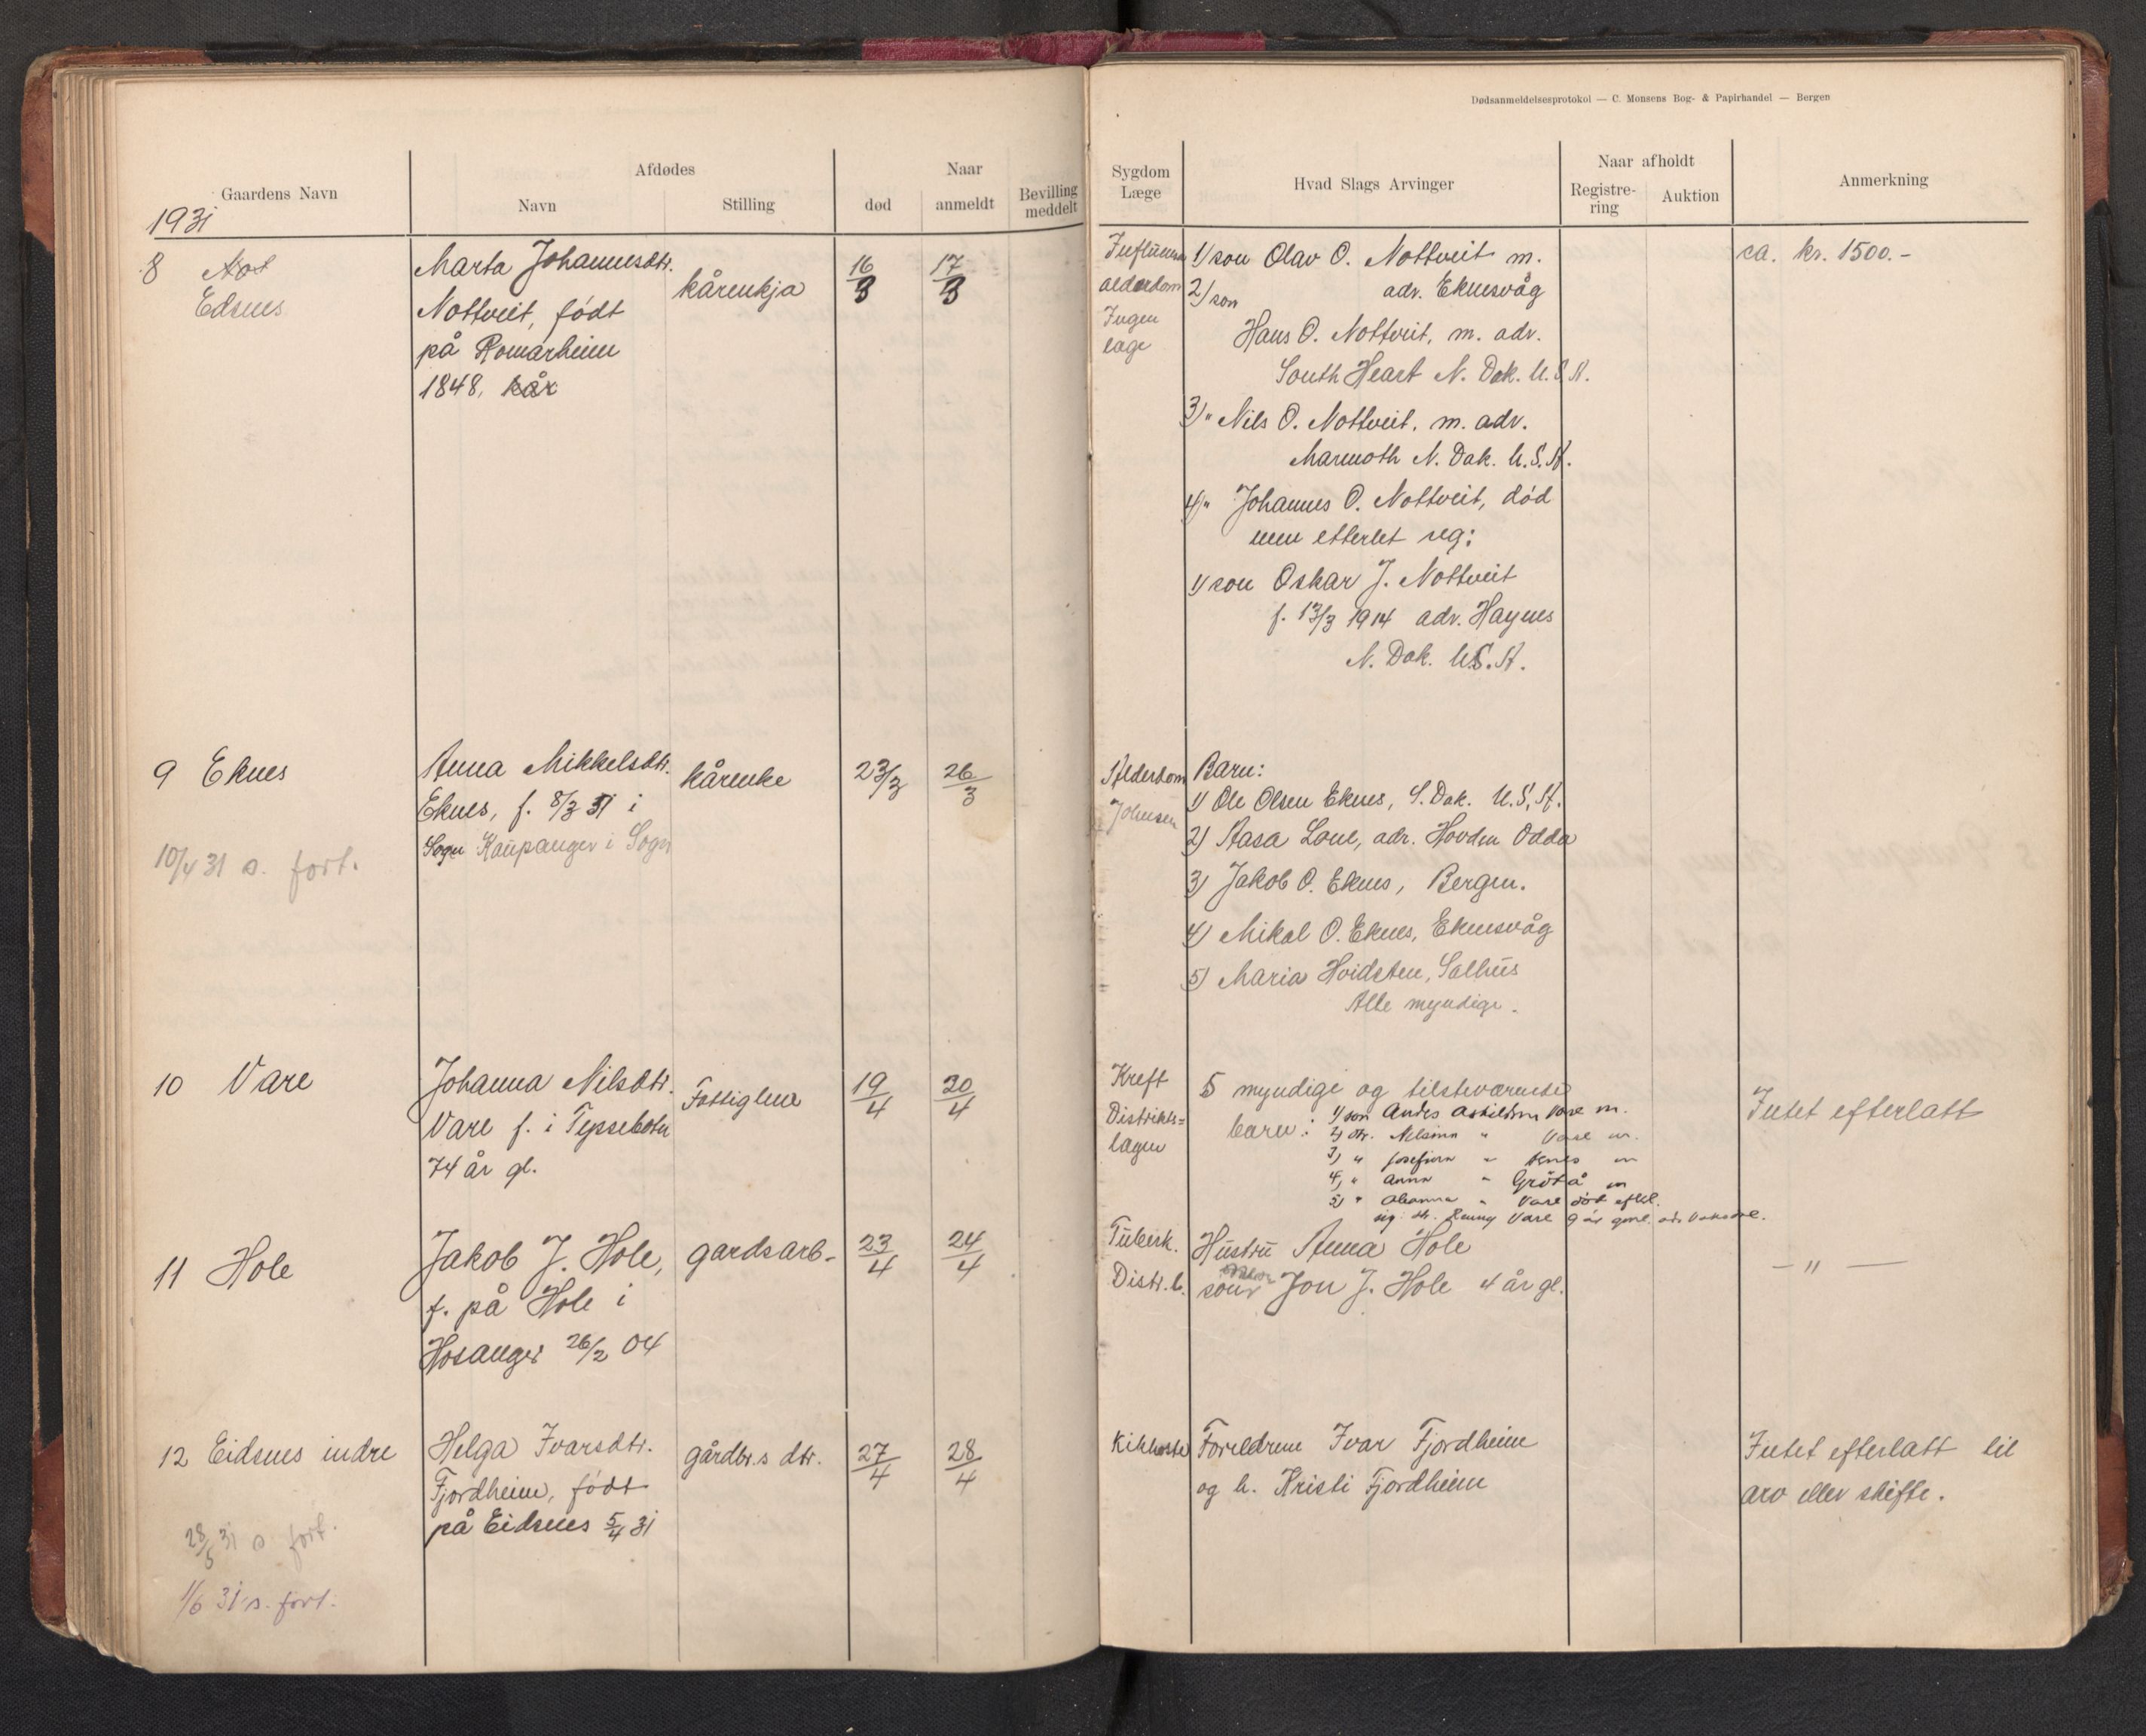 Dødsanmeldelsesprotokol — C. Monsens Bog- & Papirhandel — Bergen
Gaardens Navn
Afdødes
Navn
Stilling
Naar
død
anmeldt
Bevilling
meddelt
Sygdom
Læge
Hvad Slags Arvinger
Naar afholdt
Registre-
ring
Auktion
Anmerkning
1931
8 Not
Edsnes
Marta Johannesdtr.
Nottveit, født
på Romarheim
1848, kår
kårenkja
16/3
17/3
alderdom
Ingen
læge
1) son Olav O. Nottveit m.
adr. Eknesvåg
2) son
Hans O. Nottveit, m. adr.
South Heart N. Dak. U.S.A.
3) " Nils O. Nottveit, m. adr.
Marmoth N. Dak. U.S.A.
4) " Johannes O. Nottveit, død
men etterlet seg:
1) son Oskar J. Nottveit
f. 13/3 1914 adr. Haynes
N. Dak. U.S.A.
ca. kr. 1500.-
9 Eknes
10/4 31 s. fort.
Anna Mikkelsdtr.
Eknes, f. 8/3 51 i
Sogn Kaupanger i Sogn
kårenke
23/3
26/3
Alderdom
Johnsen
Barn:
1) Ole Olsen Eknes, S. Dak. U.S.A.
2) Aasa Lone, adr. Hovden Odda
3) Jakob O. Eknes, Bergen.
4) Mikal O. Eknes, Eknesvåg
5) Maria Hvidsten, Salhus
Alle myndige.
10 Vare
Johanna Nilsdtr.
Vare f. i Tepsebotn
74 år gl.
Fattiglem
19/4
20/4
Kreft
Distrikts-
lægen
5 myndige og tilsteværende
barn:
1) son Anders Askildsen Vare m.
2) dtr. Nelsina " Vare m.
3) " Josefina " m
4) " Anna " Grötå m
5) " " Vare død eftl.
sig: dtr. Vare 9 år gml.
Intet efterlatt
11 Hole
Jakob J. Hole,
f. på Hole i
Hosanger 26/2 04
gardsarb-
23/4
24/4
Tuberk.
Distr. l.
Hustru Anna Hole
sønn Jon J. Hole 4 år gl.
— " —
12 Eidsnes indre
28/5 31 s fort.
1/6 31 s. fort.
Helga Ivarsdtr.
Fjordheim, født
på Eidsnes 5/4 31
gårdbr.s dtr.
27/4
28/4
Kikhoste
Foreldrene Ivar Fjordheim
og h. Kristi Fjordheim
Intet efterlatt til
arv eller skifte.